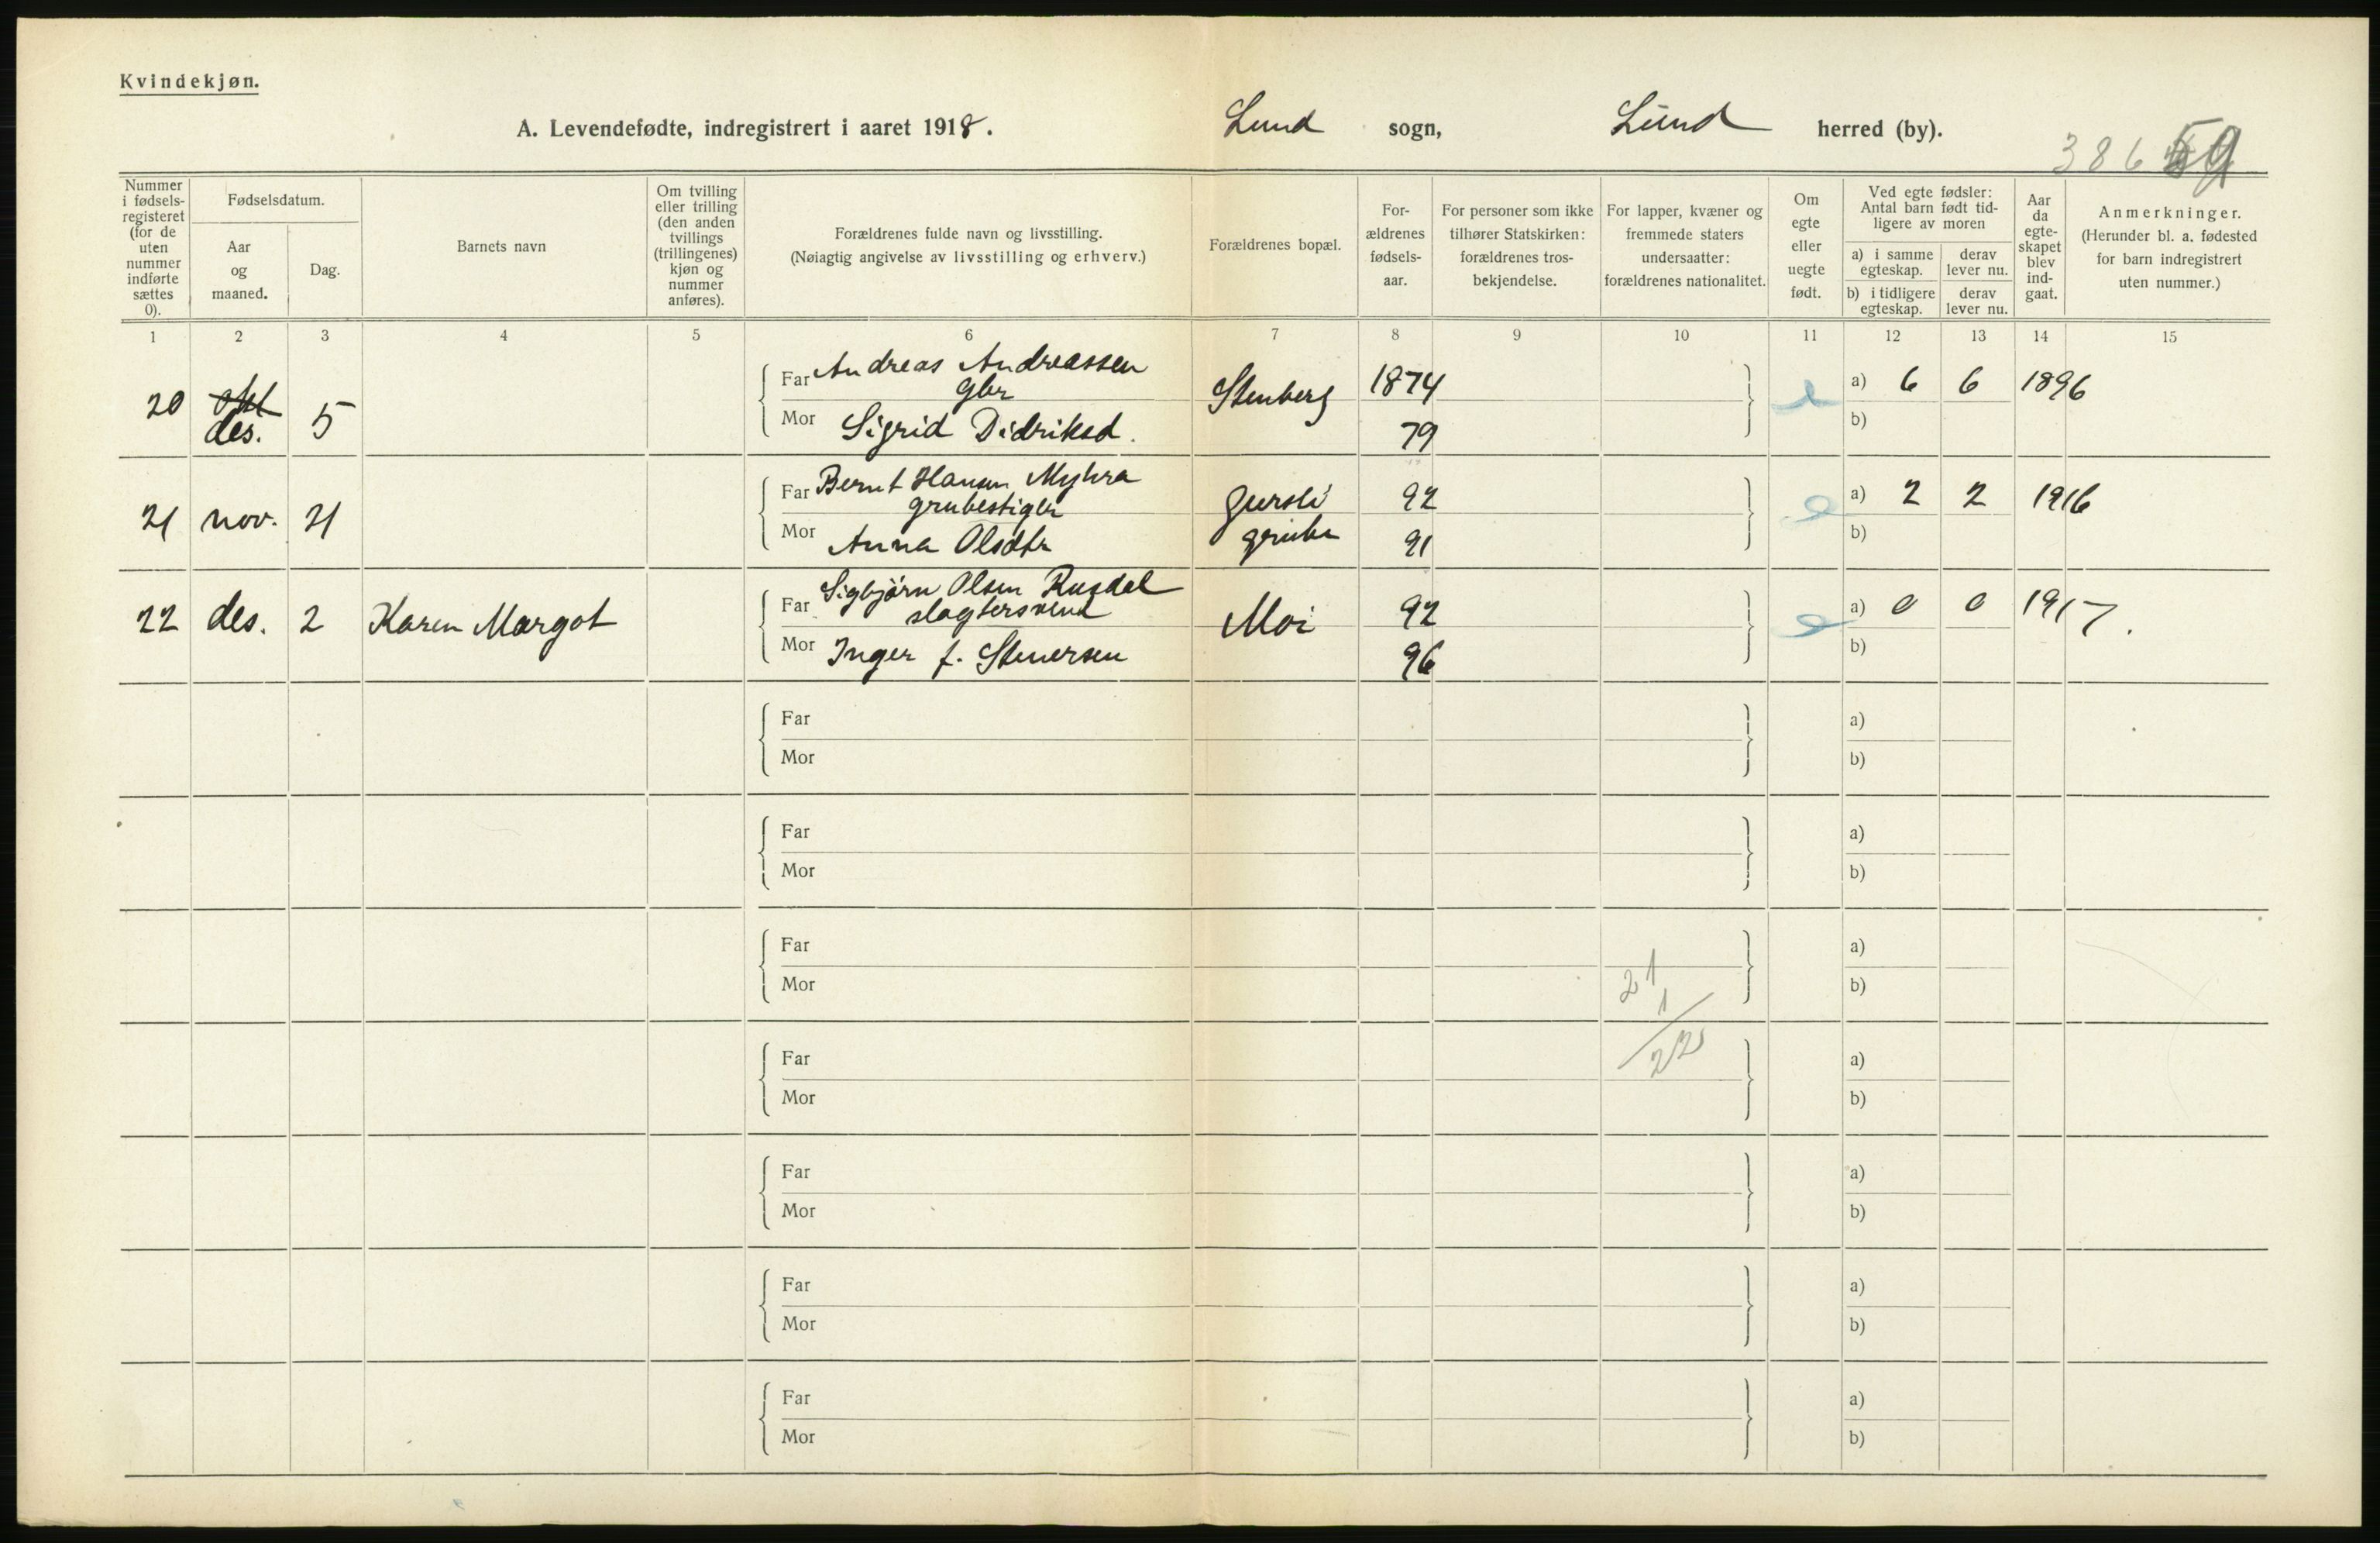 Kvindekjøn.
A. Levendefødte, indregistrert i aaret 1918. Lund sogn, Lund herred (by).
386 59
Nummer i fødsels-registeret (for de uten nummer indførte sættes 0).
Fødselsdatum.
Aar og maaned.
Dag.
Barnets navn
Om tvilling eller trilling (den anden tvillings (trillingenes) kjøn og nummer anføres).
Forældrenes fulde navn og livsstilling.
(Nøiagtig angivelse av livsstilling og erhverv.)
Forældrenes bopæl.
For-ældrenes fødsels-aar.
For personer som ikke tilhører Statskirken: forældrenes tros-bekjendelse.
For lapper, kvæner og fremmede staters undersaatter: forældrenes nationalitet.
Om egte eller uegte født.
Ved egte fødsler: Antal barn født tid-ligere av moren
a) i samme egteskap.
derav lever nu.
b) i tidligere egteskap.
derav lever nu.
Aar da egte-skapet blev ind-gaat.
Anmerkninger.
(Herunder bl. a. fødested for barn indregistrert uten nummer.)
1 2 3 4 5 6 7 8 9 10 11 12 13 14 15
20 okt des. 5 Far Andreas Andreassen gbr Stenberg 1874 e a) 6 6 1896
Mor Sigrid Didriksd. 79 b)
21 nov. 21 Far Bernt Hansen Myhra grubestiger Gursli grube 92 e a) 2 2 1916
Mor Anna Olsdtr 91 b)
22 des. 2 Karen Margot Far Sigbjørn Olsen Rusdal slagtersvend Moi 92 e a) 0 0 1917.
Mor Inger f. Stenersen 96 b)
Far a)
Mor b)
Far a)
Mor b)
Far a)
Mor 21 b)
1
22
Far a)
Mor b)
Far a)
Mor b)
Far a)
Mor b)
Far a)
Mor b)